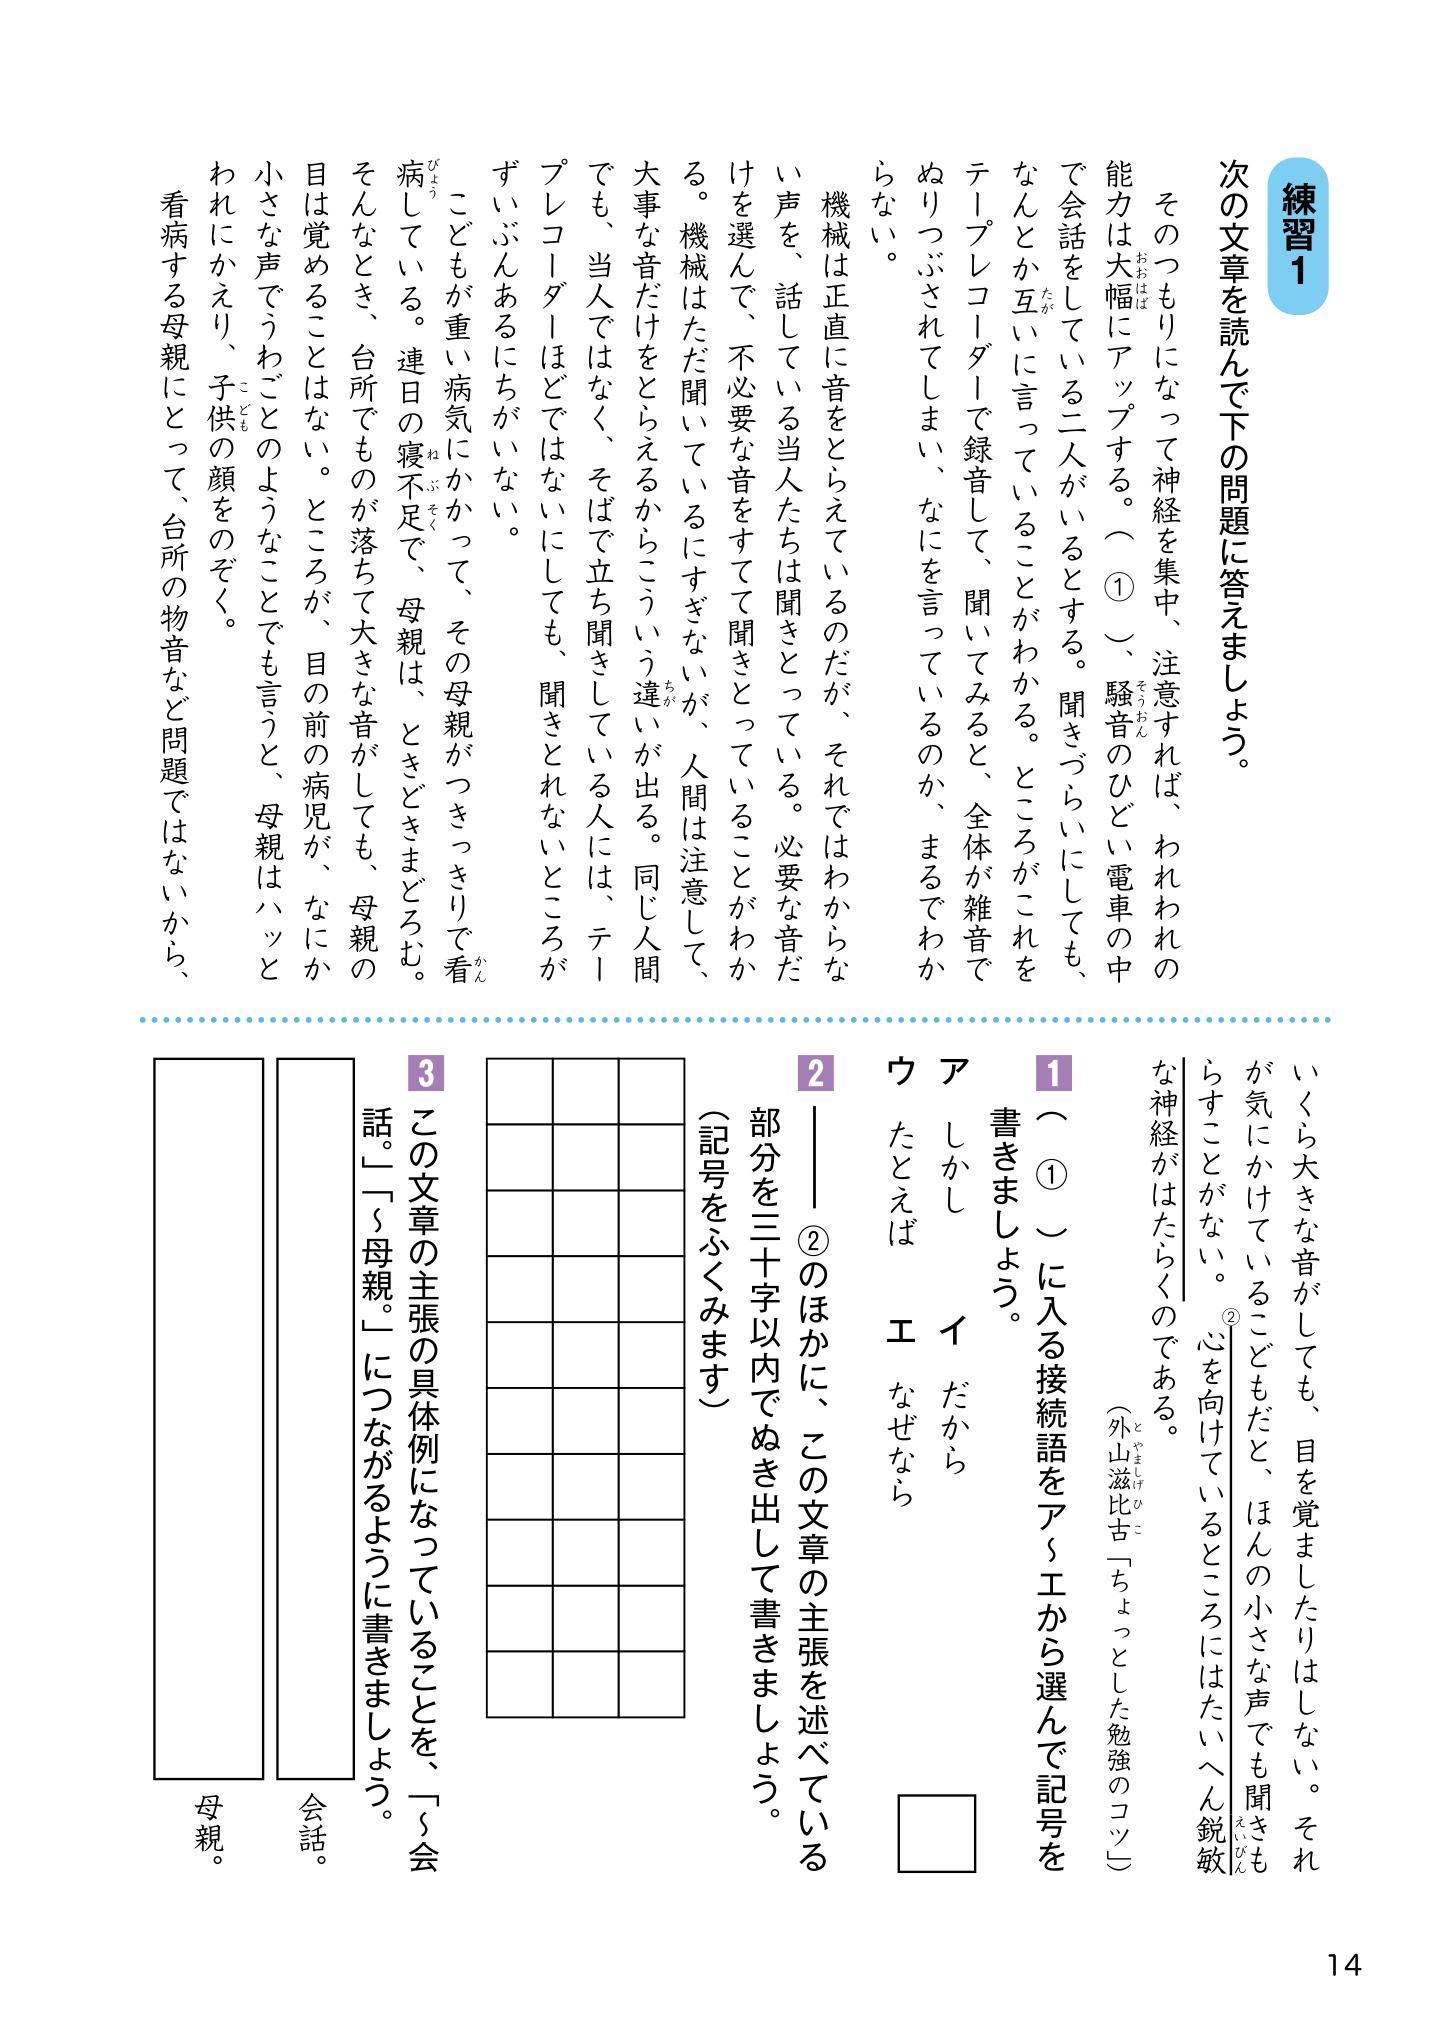 練習1
次の文章を読んで下の問題に答えましょう。
そのつもりになって神経を集中、注意すれば、われわれの
能力は大幅にアップする。（ ① ）、騒音のひどい電車の中
で会話をしている二人がいるとする。聞きづらいにしても、
なんとか互いに言っていることがわかる。ところがこれを
テープレコーダーで録音して、聞いてみると、全体が雑音で
ぬりつぶされてしまい、なにを言っているのか、まるでわか
らない。
機械は正直に音をとらえているのだが、それではわからな
い声を、話している当人たちは聞きとっている。必要な音だ
けを選んで、不必要な音をすてて聞きとっていることがわか
る。機械はただ聞いているにすぎないが、人間は注意して、
大事な音だけをとらえるからこういう違いが出る。同じ人間
でも、当人ではなく、そばで立ち聞きしている人には、テー
プレコーダーほどではないにしても、聞きとれないところが
ずいぶんあるにちがいない。
こどもが重い病気にかかって、その母親がつきっきりで看
病している。連日の寝不足で、母親は、ときどきまどろむ。
そんなとき、台所でものが落ちて大きな音がしても、母親の
目は覚めることはない。ところが、目の前の病児が、なにか
小さな声でうわごとのようなことでも言うと、母親はハッと
われにかえり、子供の顔をのぞく。
看病する母親にとって、台所の物音など問題ではないから、
いくら大きな音がしても、目を覚ましたりはしない。それ
が気にかけているこどもだと、ほんの小さな声でも聞きも
らすことがない。②心を向けているところにはたいへん鋭敏
な神経がはたらくのである。
（外山滋比古「ちょっとした勉強のコツ」）
1 （ ① ）に入る接続語をア～エから選んで記号を
書きましょう。
ア しかし イ だから
ウ たとえば エ なぜなら
2 ――②のほかに、この文章の主張を述べている
部分を三十字以内でぬき出して書きましょう。
（記号をふくみます）
3 この文章の主張の具体例になっていることを、「～会
話。」「～母親。」につながるように書きましょう。
会話。
母親。
14